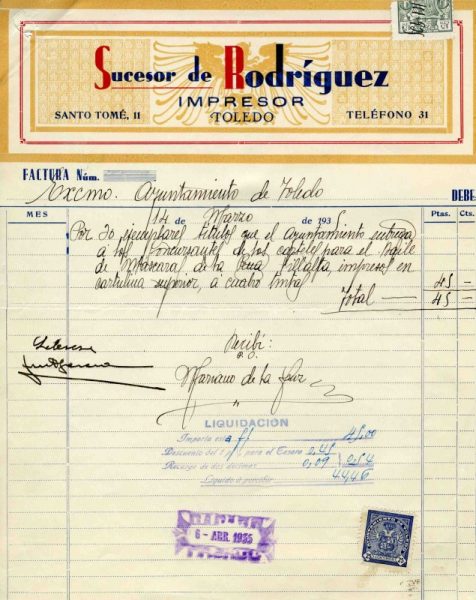 Sucesor de Rodríguez
IMPRESOR
SANTO TOMÉ, 11 TOLEDO TELÉFONO 31
FACTURA Núm.
Excmo. Ayuntamiento de Toledo
DEBE
MES 14 de Marzo de 1935 Ptas. Cts.
Por 30 ejemplares titulos que el Ayuntamiento entrega
a los concursantes de los carteles para el Baile
de Máscara, de la Villalta, impresos en
cartulina superior, á cuatro tintas 45 —
Total — 45 —
Recibí:
P. O.
Mariano de la
LIQUIDACIÓN
Importa esta 45,00
Descuento del 1 para el Tesoro 0,45
Recargo de dos décimas 0,09 0,54
Líquido á percibir 44,46
6 - ABR. 1935